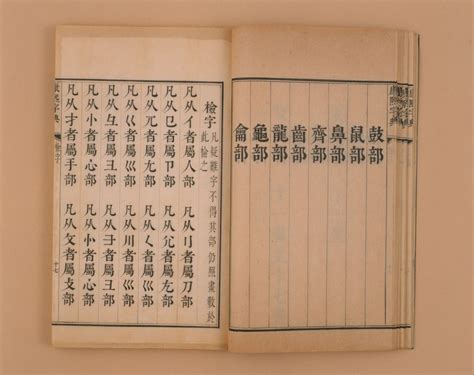 鼓部
鼠部
鼻部
齊部
齒部
龍部
龜部
龠部
檢字 凡疑難字不得其部仍照畫數於此檢之
凡从亻者屬人部 凡从刂者屬刀部
凡从㔾者屬卩部 凡从尣者屬尢部
凡从兀者屬尢部 凡从𡿨者屬巛部
凡从巜者屬巛部 凡从川者屬巛部
凡从彑者屬彐部 凡从⺕者屬彐部
凡从忄者屬心部 凡从㣺者屬心部
凡从扌者屬手部 凡从攵者屬攴部
康熙字典 檢字